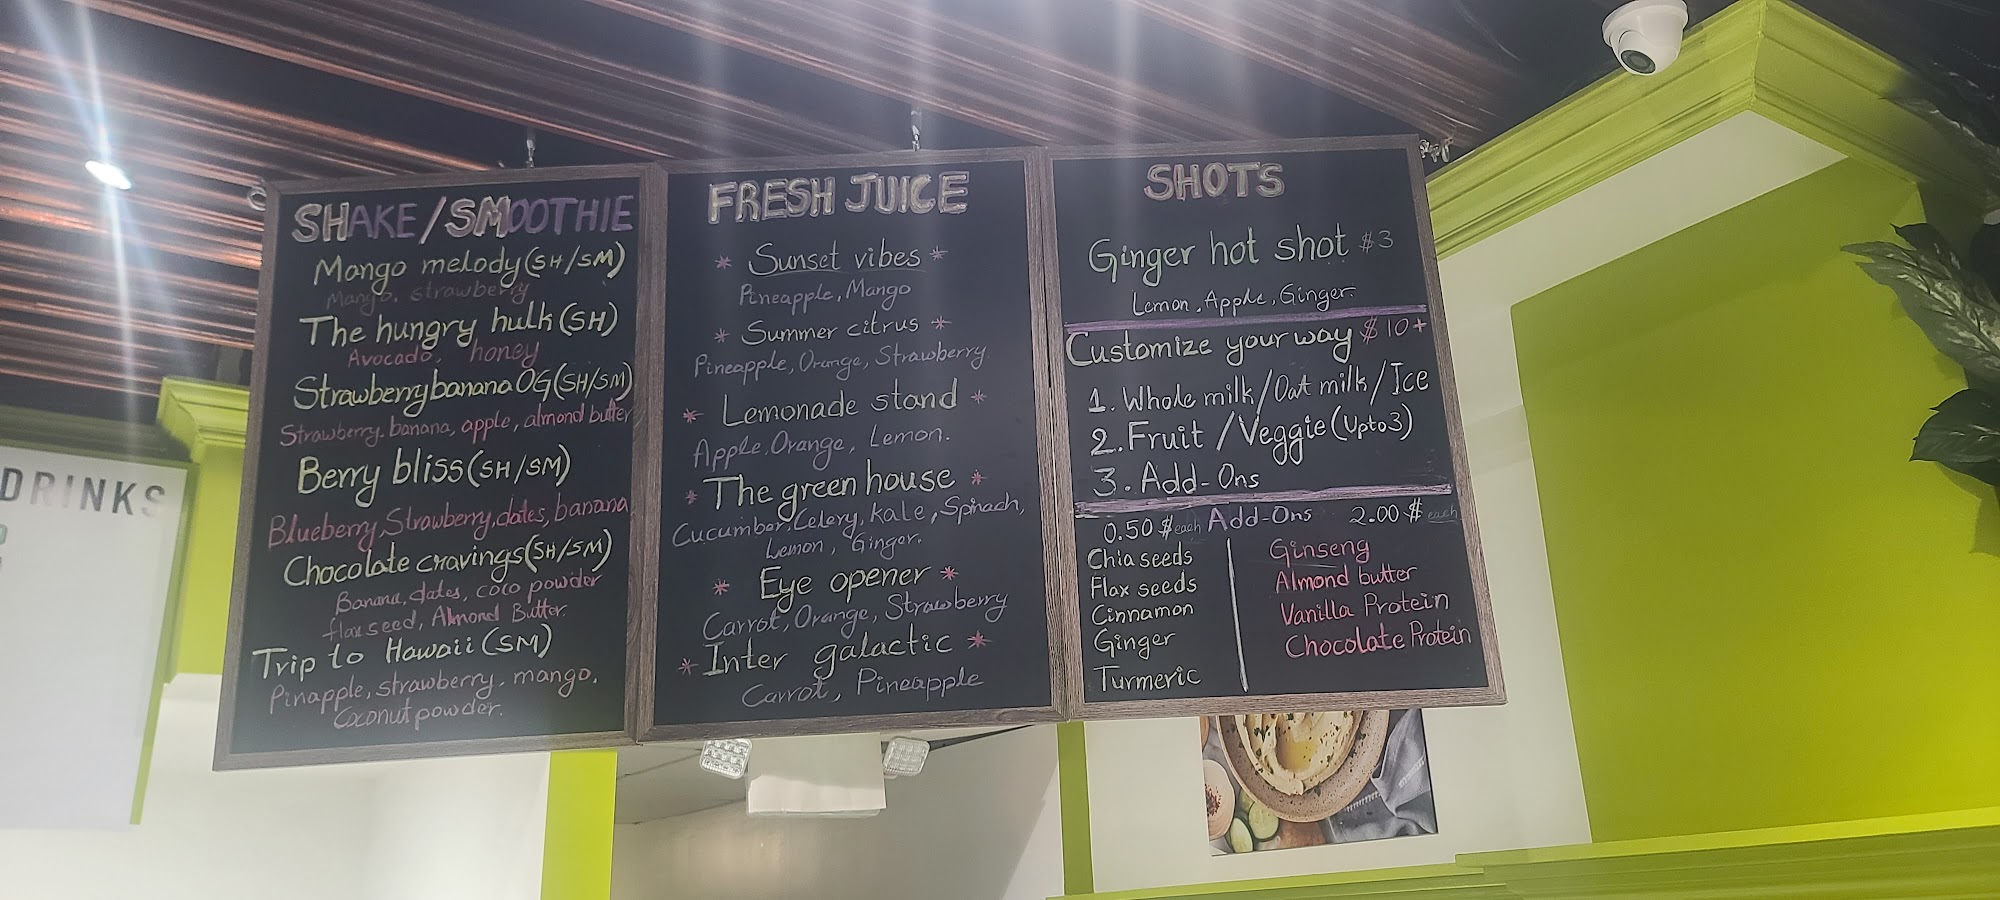 DRINKS
SHAKE/SMOOTHIE
Mango melody (SH/SM)
Mango, strawberry
The hungry hulk (SH)
Avocado, honey
Strawberry banana OG (SH/SM)
Strawberry, banana, apple, almond butter
Berry bliss (SH/SM)
Blueberry, Strawberry, dates, banana
Chocolate cravings (SH/SM)
Banana, dates, coco powder
flax seed, Almond Butter.
Trip to Hawaii (SM)
Pinapple, strawberry, mango,
Coconut powder.
FRESH JUICE
* Sunset vibes *
Pineapple, Mango
* Summer citrus *
Pineapple, Orange, Strawberry
* Lemonade stand *
Apple, Orange, Lemon.
* The green house *
Cucumber, Celery, kale, Spinach,
Lemon, Ginger.
* Eye opener *
Carrot, Orange, Strawberry
* Inter galactic *
Carrot, Pineapple
SHOTS
Ginger hot shot $3
Lemon, Apple, Ginger.
Customize your way $10+
1. Whole milk/Oat milk/Ice
2. Fruit/Veggie (Upto3)
3. Add-Ons
0.50 $ each Add-Ons 2.00 $ each
Chia seeds
Flax seeds
Cinnamon
Ginger
Turmeric
Ginseng
Almond butter
Vanilla Protein
Chocolate Protein